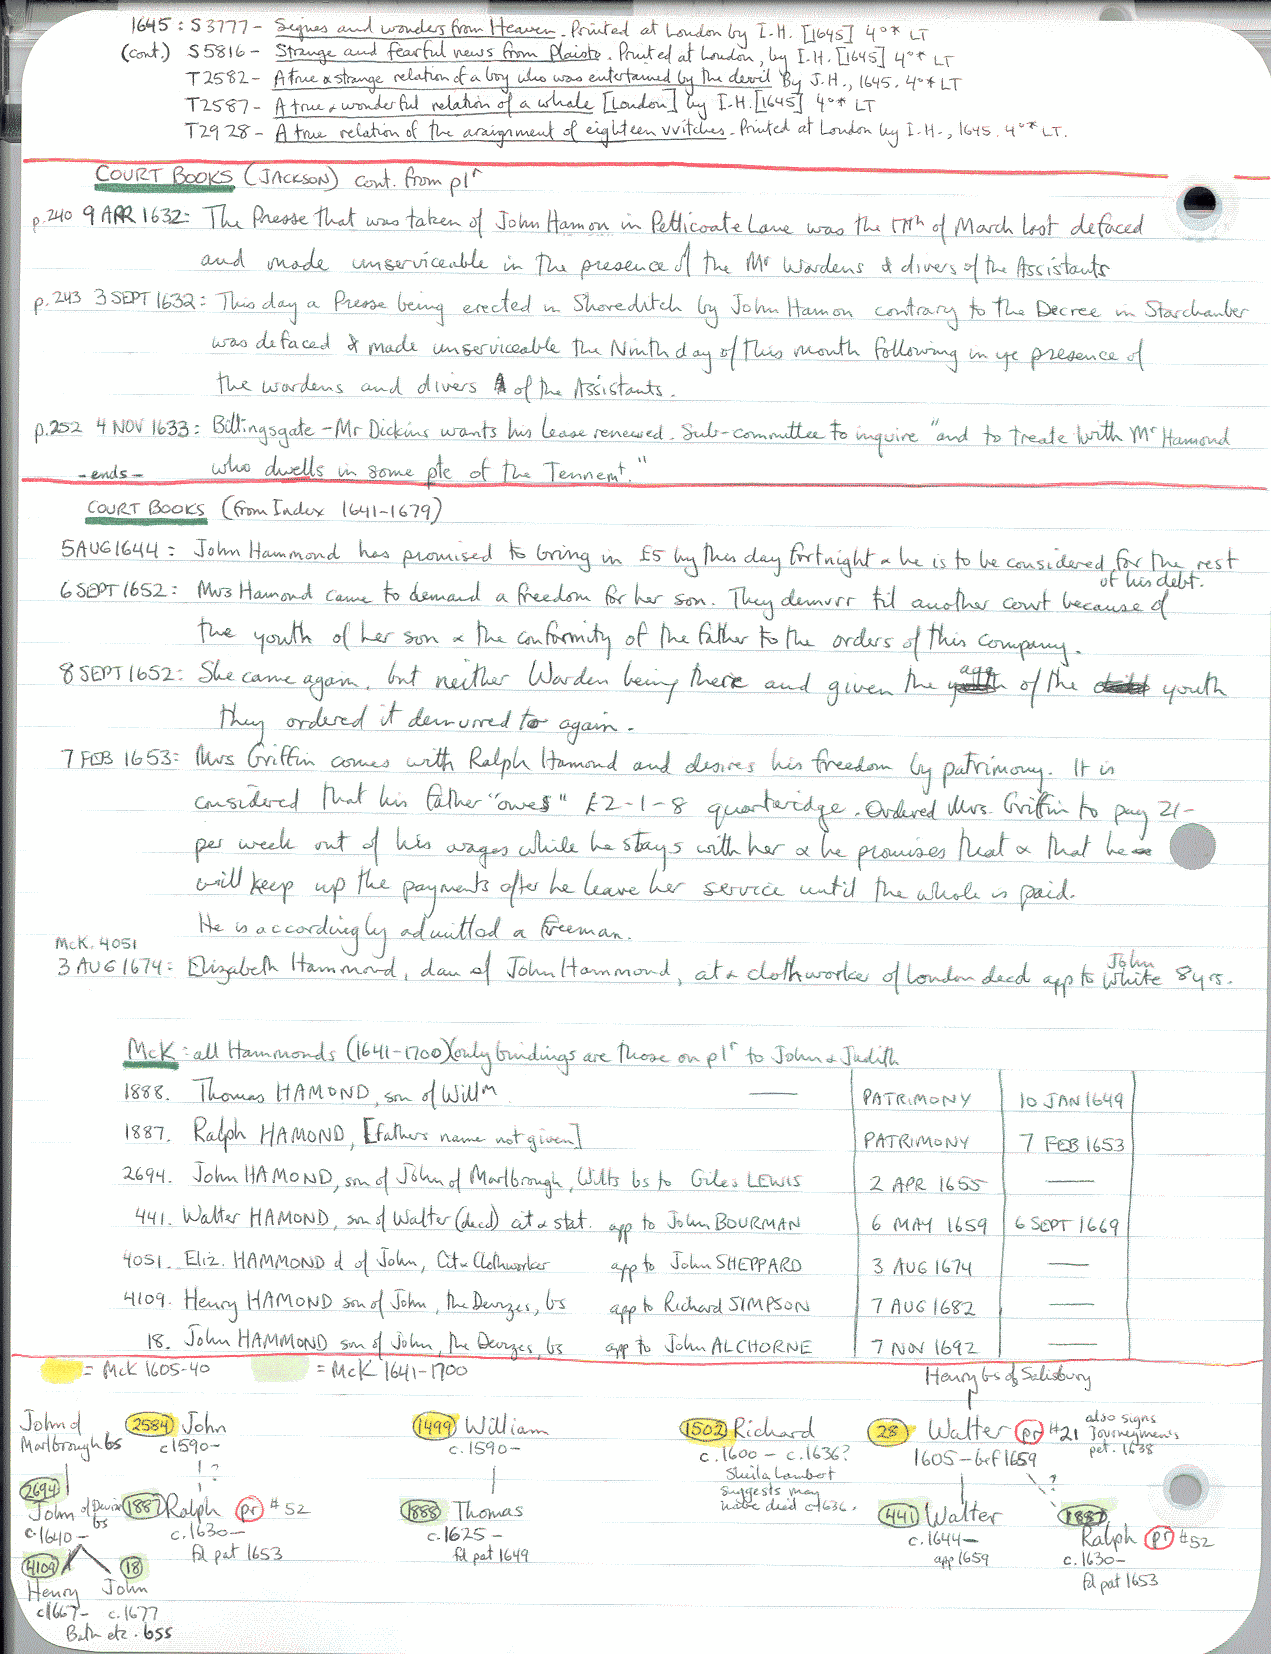 1645: S3777- Signes and wonders from Heaven. Printed at London by I.H. [1645] 4°* LT
(cont.) S5816- Strange and fearful news from Plaisto. Printed at London, by I.H. [1645] 4°* LT
T2582- A true & strange relation of a boy who was entertained by the devil By J.H., 1645. 4°* LT
T2587- A true & wonderful relation of a whale [London] by I.H. [1645] 4°* LT
T2928- A true relation of the araignment of eighteen vvitches. Printed at London by I.H., 1645. 4°* LT.
COURT BOOKS (JACKSON) cont. from p1r
p.240 9 APR 1632: The Presse that was taken of John Hamon in Petticoate Lane was the 17th of March last defaced
and made unserviceable in the presence of the Mr Wardens & divers of the Assistants
p.243 3 SEPT 1632: This day a Presse being erected in Shoreditch by John Hamon contrary to the Decree in Starchamber
was defaced & made unserviceable the Ninth day of this month following in ye presence of
the wardens and divers of the Assistants.
p.252 4 NOV 1633: Billingsgate - Mr Dickins wants his lease renewed. Sub-committee to inquire "and to treate with Mr Hamond
-ends- who dwells in some pte of the Tennemt."
COURT BOOKS (from Index 1641-1679)
5 AUG 1644: John Hammond has promised to bring in £5 by this day fortnight & he is to be considered for the rest
of his debt.
6 SEPT 1652: Mrs Hamond came to demand a freedom for her son. They demurr til another court because of
the youth of her son & the conformity of the father to the orders of this company.
8 SEPT 1652: She came again, but neither Warden being there and given the age of the youth
they ordered it demurred to again.
7 FEB 1653: Mrs Griffin comes with Ralph Hamond and desires his freedom by patrimony. It is
considered that his father "owes" £2-1-8 quarteridge. Ordered Mrs. Griffin to pay 2/-
per week out of his wages while he stays with her & he promises that & that he
will keep up the payments after he leave her service until the whole is paid.
He is accordingly admitted a freeman.
McK. 4051
3 AUG 1674: Elizabeth Hammond, dau of John Hammond, cit & clothworker of London decd app to John White 8 yrs.
McK: all Hammonds (1641-1700) (only bindings are those on p1r to John & Judith
1888. Thomas HAMOND, son of Willm — PATRIMONY 10 JAN 1649
1887. Ralph HAMOND, [father's name not given] PATRIMONY 7 FEB 1653
2694. John HAMOND, son of John of Marlbrough, Wilts bs to Giles LEWIS 2 APR 1655 —
441. Walter HAMOND, son of Walter (decd) cit & stat. app to John BOURMAN 6 MAY 1659 6 SEPT 1669
4051. Eliz. HAMMOND d of John, Cit & Clothworker app to John SHEPPARD 3 AUG 1674 —
4109. Henry HAMOND son of John, the Devizes, bs app to Richard SIMPSON 7 AUG 1682 —
18. John HAMMOND son of John, the Devizes, bs app to John ALCHORNE 7 NOV 1692 —
= McK 1605-40 = McK 1641-1700
Henry bs of Salisbury
John of Marlbrough bs
2584 John
c1590-
1499 William
c.1590-
1502 Richard
c.1600 - c.1636?
Sheila Lambert
suggests may
have died c1636.
28 Walter pr #21
1605 - bef 1659
also signs
Journeymen's
pet. 1638
2694
John of Devizes
bs
c.1640-
?
1887 Ralph pr #52
c.1630-
fd pat 1653
1888 Thomas
c.1625-
fd pat 1649
441 Walter
c.1644-
app 1659
?
1887
Ralph pr #52
c.1630-
fd pat 1653
4109
Henry
c1667-
18
John
c.1677
Bath etc. bss